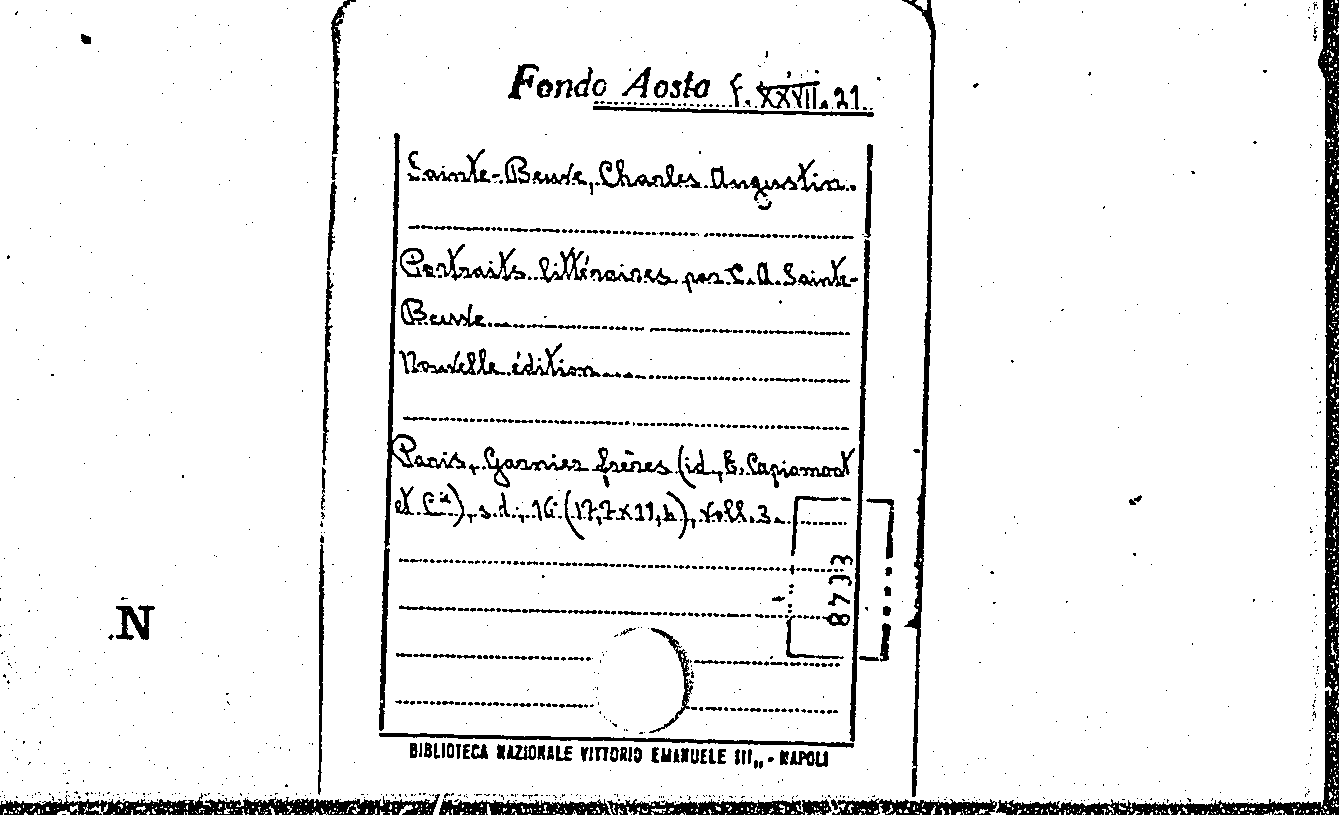 Fondo Aosta f. XXVII. 21
Sainte-Beuve, Charles Augustin.
Portraits littéraires par C. A. Sainte-
Beuve
Nouvelle édition
Paris, Garnier frères (id., E. Capiomont
et Cie), s.d., 16 (17,7x11,4), voll. 3.
N
BIBLIOTECA NAZIONALE VITTORIO EMANUELE III„ - NAPOLI